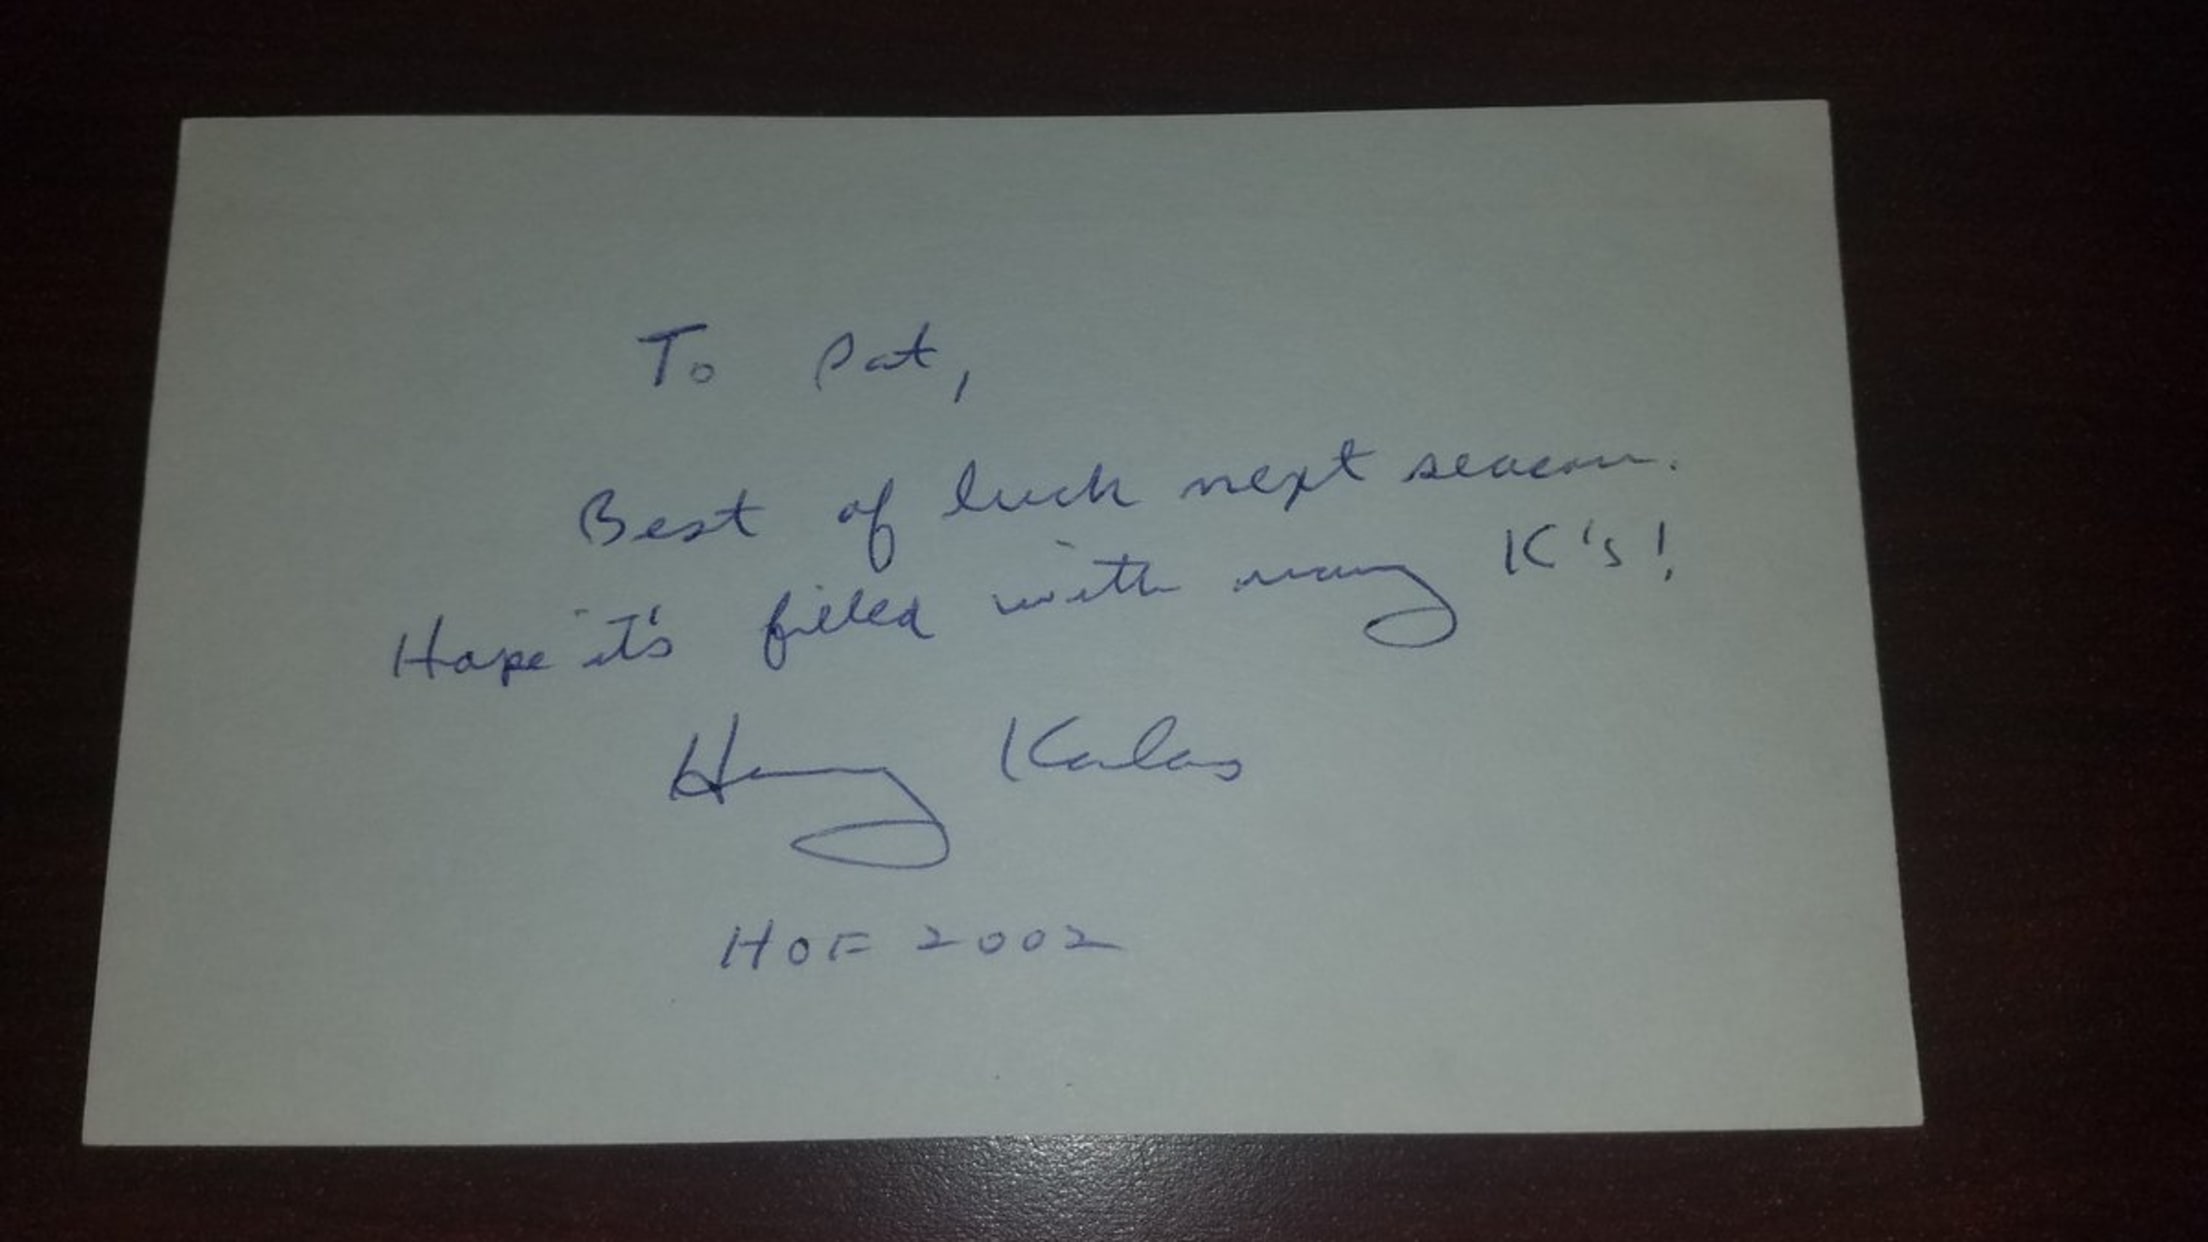 To Pat,
Best of luck next season.
Hope it's filled with many K's!
Harry Kalas
HOF 2002